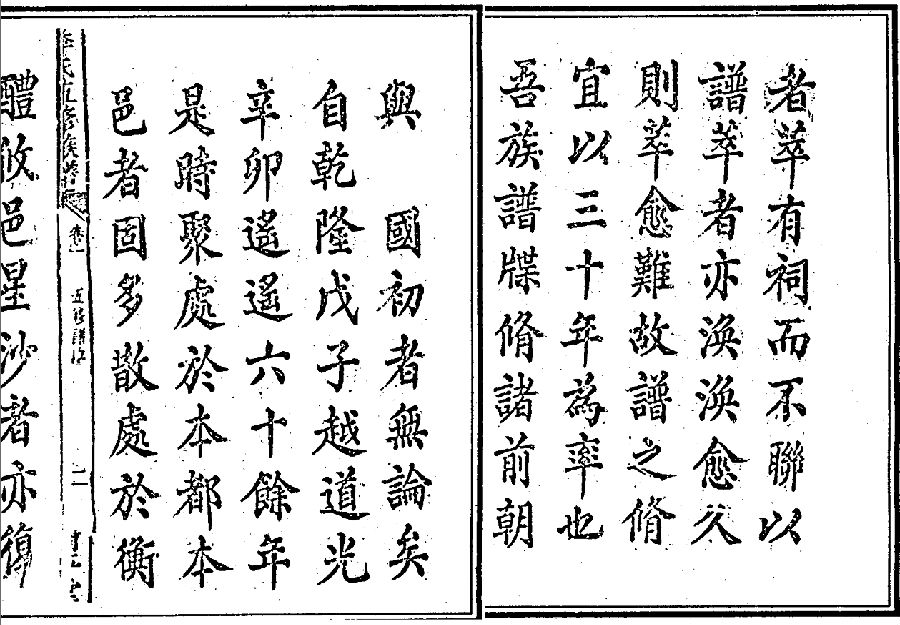 者萃有祠而不聯以
譜萃者亦渙渙愈久
則萃愈難故譜之脩
宜以三十年為率也
吾族譜牒脩諸前朝
與　國初者無論矣
自乾隆戊子越道光
辛卯遙遙六十餘年
是時聚處於本都本
邑者固多散處於衡
氏五修族譜
卷一
五修譜序
二
醴攸邑星沙者亦復